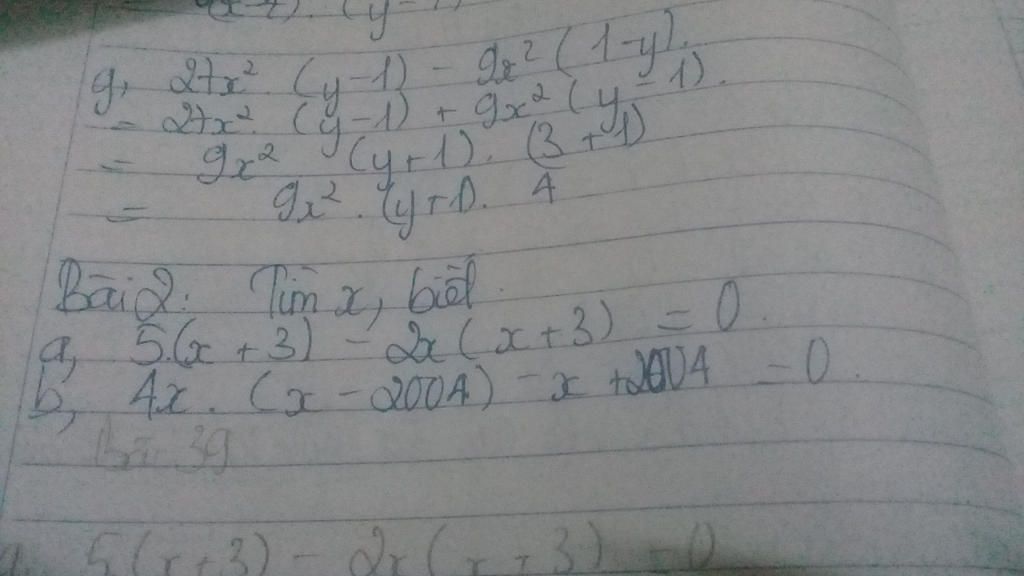 g, 27x² (y-1) - 9x² (1-y).
= 27x² (y-1) + 9x² (y-1).
= 9x² (y+1). (3+1)
= 9x². (y+1). 4
Bài 2: Tìm x, biết.
a, 5.(x+3) - 2x(x+3) = 0.
b, 4x. (x-2004) - x + 2004 = 0.
Bài 39
5(x+3) - 2x(x+3) = 0